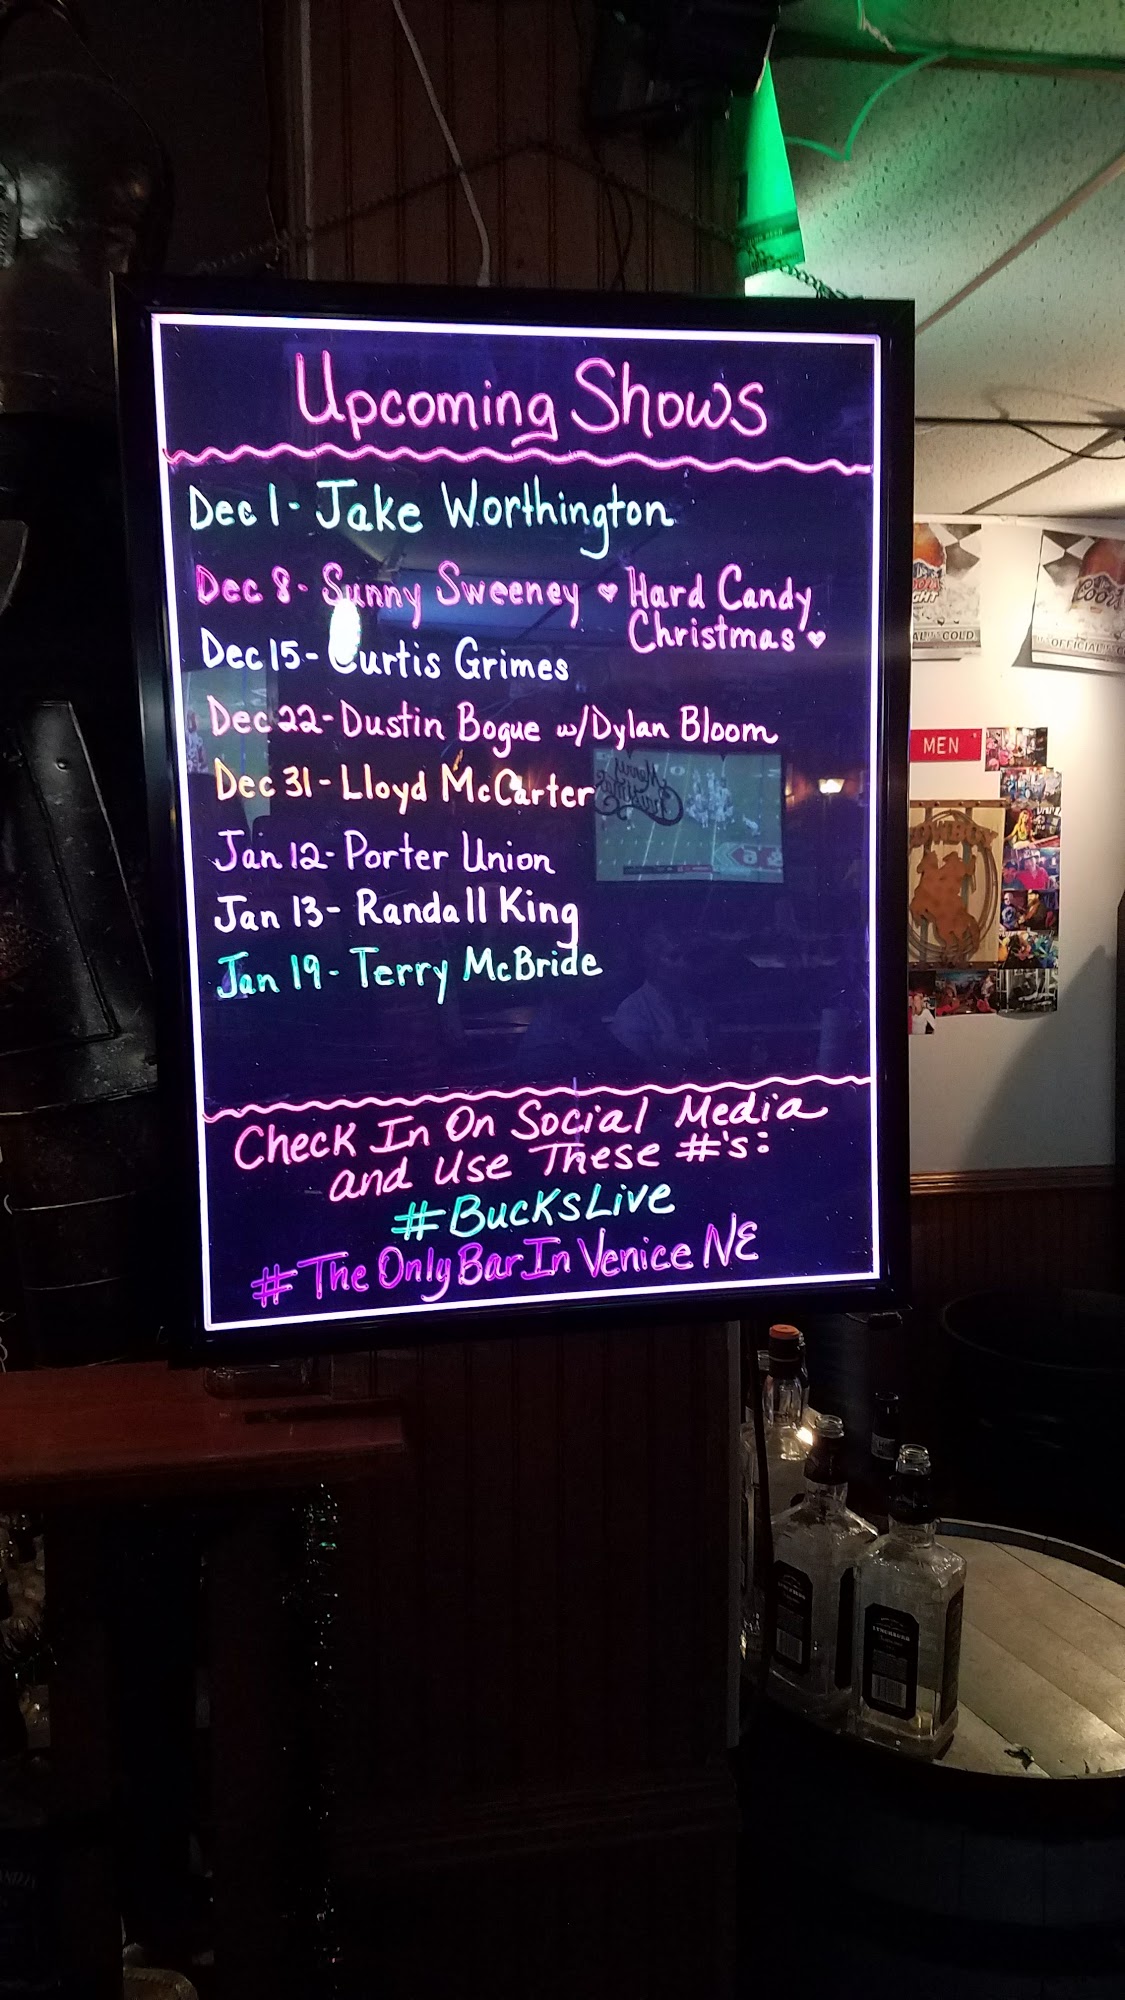 Upcoming Shows
Dec 1 - Jake Worthington
Dec 8 - Sunny Sweeney ♥ Hard Candy
Christmas ♥
Dec 15 - Curtis Grimes
Dec 22 - Dustin Bogue w/Dylan Bloom
Dec 31 - Lloyd McCarter
Jan 12 - Porter Union
Jan 13 - Randall King
Jan 19 - Terry McBride
Check In On Social Media
and Use These #'s:
#BucksLive
#TheOnlyBarInVeniceNE
Merry
Christmas
MEN
COWBOY
COLD
OFFICIAL
COLD
Coors
LYNCHBURG